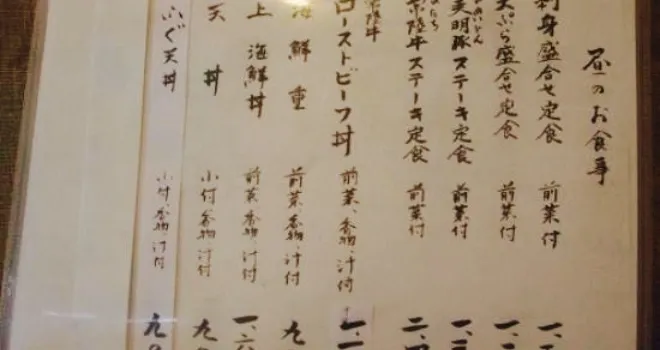 昼のお食事
刺身盛合せ定食 前菜付 一、
天ぷら盛合せ定食 前菜付 一、
美明豚ステーキ定食 前菜付 一、
常陸牛ステーキ定食 前菜付 二、
常陸牛
ローストビーフ丼 前菜、香物、汁付 一、
海鮮重 前菜、香物、汁付 九
上海鮮丼 前菜、香物、汁付 一、
天丼 小付、香物、汁付 九
ふぐ天丼 小付、香物、汁付 九